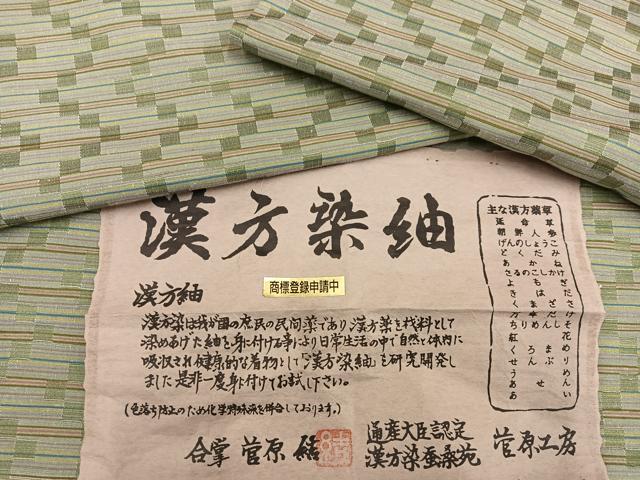 漢方染紬
漢方紬
商標登録申請中
漢方染は我が国の庶民の民間薬であり漢方薬を材料として
染めあげた紬を身に付ける事により日常生活の中で自然と体内に
吸収され健康的な着物として「漢方染紬」を研究開発し
ました是非一度身に付けてお試し下さい。
(色落ち防止のため化学特殊液を併合しております。)
合掌 菅原
通産大臣認定
漢方染蚕桑苑
菅原工房
主な漢方薬草
延命草
朝鮮人参
げんのしょうこ
どくだみ
あかね
さるのこしかけ
よもぎ